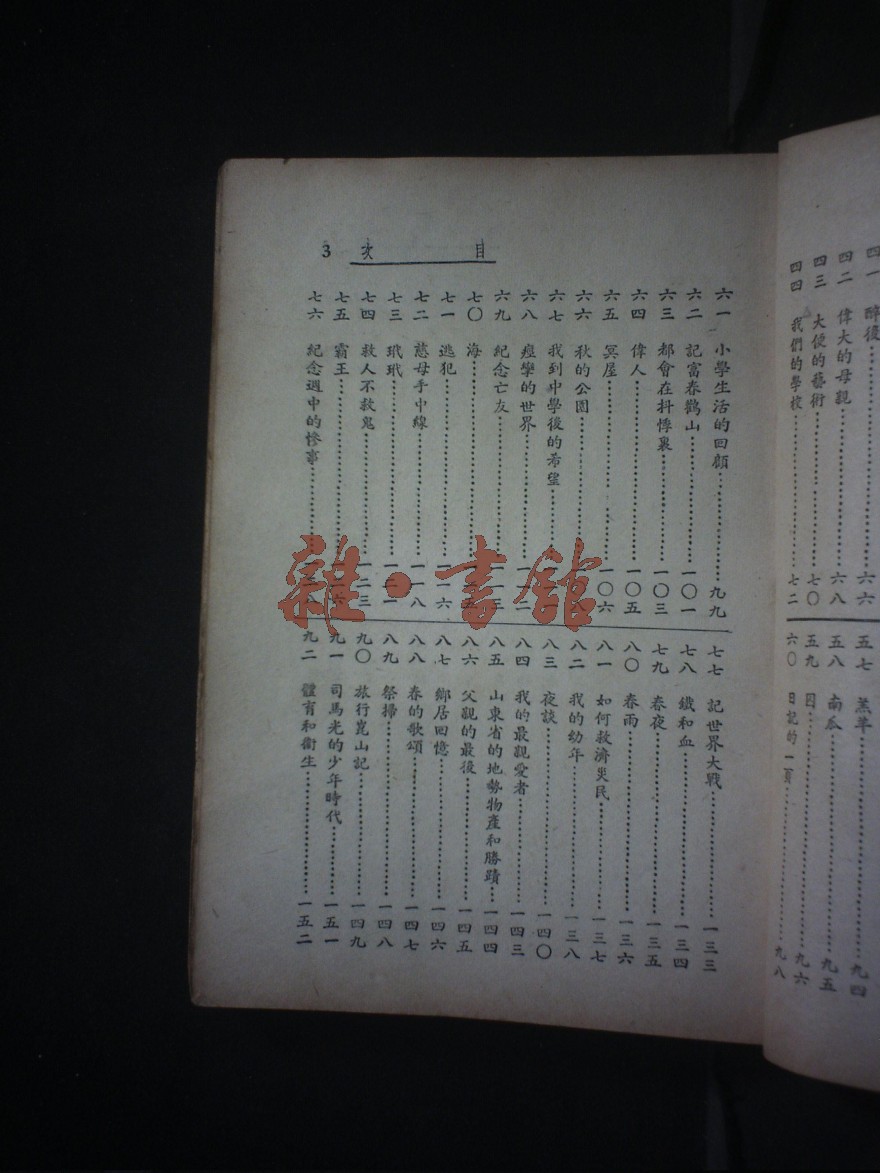 四一 醉後 六六
四二 偉大的母親 六八
四三 大便的藝術 七〇
四四 我們的學校 七二
五七 羔羊 九四
五八 南瓜 九五
五九 九六
六〇 日記的一頁 九八
目次 3
六一 小學生活的回顧 九九
六二 記富春鸛山 一〇一
六三 都會在抖悸裏 一〇三
六四 偉人 一〇五
六五 冥屋 一〇六
六六 秋的公園
六七 我到中學後的希望
六八 痙攣的世界 一一二
六九 紀念亡友 一一三
七〇 海
七一 逃犯 一一六
七二 慈母手中線 一一八
七三 玳玳
七四 救人不救鬼 一二三
七五 霸王
七六 紀念週中的慘事
七七 記世界大戰 一三三
七八 鐵和血 一三四
七九 春夜 一三五
八〇 春雨 一三六
八一 如何救濟災民 一三七
八二 我的幼年 一三八
八三 夜談 一四〇
八四 我的最親愛者 一四三
八五 山東省的地勢物產和勝蹟 一四四
八六 父親的最後 一四五
八七 鄉居回憶 一四六
八八 春的歌頌 一四七
八九 祭掃 一四八
九〇 旅行崑山記 一四九
九一 司馬光的少年時代 一五一
九二 體育和衞生 一五二
雜·書館